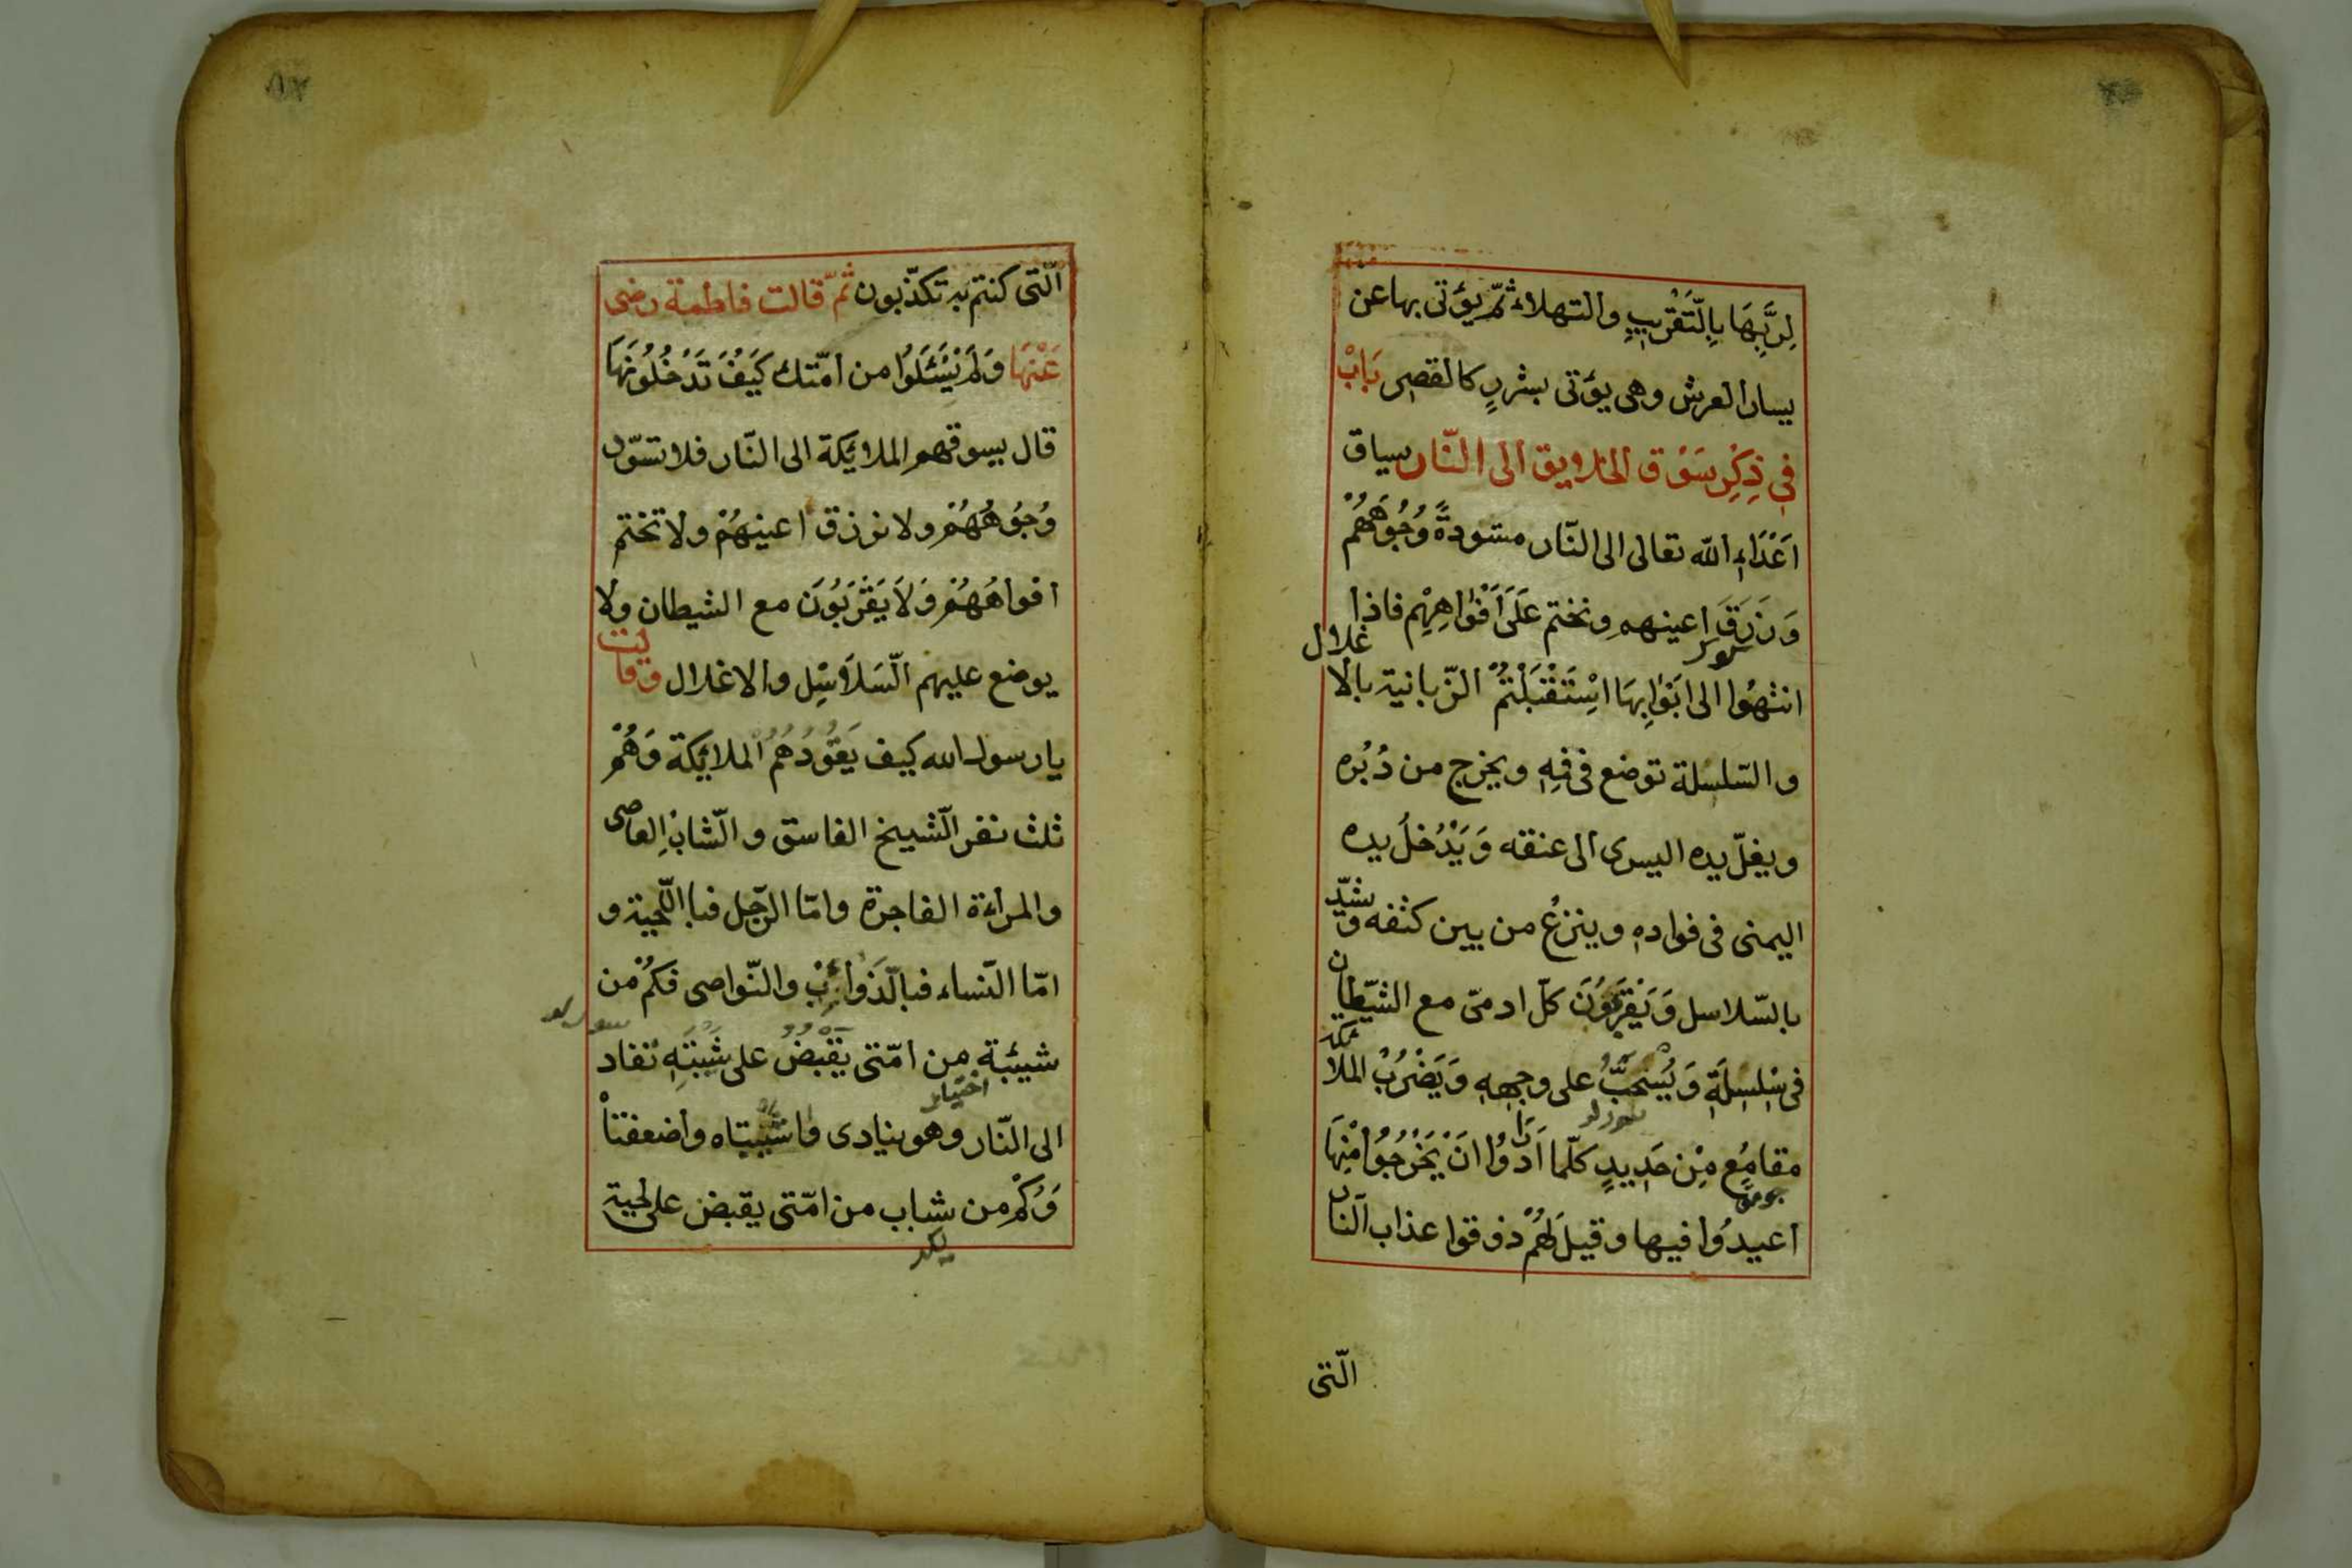 لِرَبِّهَا بِالتَّقْرِيبِ والتهلاء ثمّ يؤتى بها عن
يسار العرش وهى يؤتى بشررٍ كالقصِر بَابْ
فِي ذِكْرِ سَوْق الخلايق الى النّار سياق
اَعْدَاءِ الله تعالى الى النّار مسّودةً وُجُوهَهُمْ
وَنَزَرَقَ اعينهم ونختم عَلَى اَفْوَاهِهِم فاذا
انتهُوا الى ابَوَابِهَا اسْتَقْبَلْتُمْ الزّبانية بالا
غلال
والسّلسلة توضع فى فِهِ ويخرج من دُبُره
ويغلّ يده اليسرى الى عنقه وَيَدْخُلُ يده
اليمنى فى فواده وينزعُ من بين كتفه و
يشدّ
بالسّلاسل وَيَقْرَبُونَ كلّ ادمىّ مع الشّيطان
فى سْلِسِلَةِ وَيُسْحَبُّ على وجهِهِ وَيَضْرُبْ الملا
ئكة
مقامُعٍ مِنْ حَدِيدٍ كلّما اَرَادُوا انَْ يَخْرُجُوا مْنِهَا
اعيدُوا فيها وقيلَ لَهُمْ ذوقوا عذاب النّار
الّتى
الّتى كنتم به تكذّبون ثمّ قالت فاطمة رضى
عَنْهَا وَلَمْ يَسْئَلَوُا من امّتك كَيَفَْ تَدْخُلُونَهَا
قال يسوقهم الملائكة الى النّار فلا تسّود
وُجُوهُهُمْ ولا نزرق اعينهُمْ ولا تختم
افواهُهُمْ وَلاَ يَقْرَبُوُنَ مع الشيطان ولا
يوضع عليهم السَّلاَسِْلِ والاغلال وقا
لت
يا رسول الله كيف يَقُوُدُهُمُ الملائكة وَهُمْ
ثلث نفر الشّيخ الفاسق والشّابْ العاصى
والمراءة الفاجرة وامّا الرّجل فبا اللّحية و
امّا النّساء فبالّذَوائِبْ والنّواصى فكُمْ من
شيئبة من امّتى يقْبضُ على شَيْبَتِهِ تفاد
الى النّار وهو ينادى واشَيْبتاه واضعفتاْ
وَكُمْ من شاب من امّتى يقبض على لحية